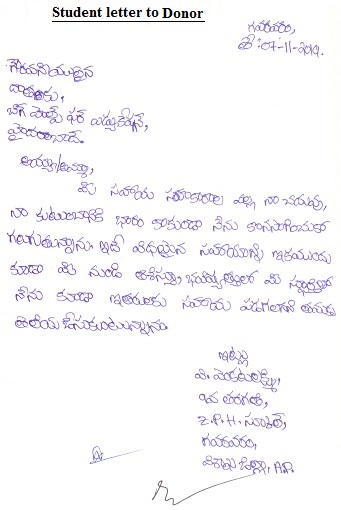 Student letter to Donor
గవరవరం,
తే: 07-11-2019.
గౌరవనీయులైన
దాతలకు,
బిగ్ హెల్ప్ ఫర్ ఎడ్యుకేషన్,
హైదరాబాద్.
అయ్యా/అమ్మా,
మీ సహాయ సహకారాల వల్ల నా చదువు,
నా కుటుంబానికి భారం కాకుండా నేను కొనసాగించుకో
గలుగుతున్నాను. ఇదే విధమైన సహాయాన్ని ఇకముందు
కూడా మీ నుండి ఆశిస్తూ, భవిష్యత్తులో మీ స్ఫూర్తితో
నేను కూడా ఇతరులకు సహాయ పడగలనని తమకు
తెలియ చేసుకుంటున్నాను.
ఇట్లు
వి. వెంకటలక్ష్మి,
తరగతి,
Z.P.H. స్కూల్,
గవరవరం,
విశాఖ జిల్లా, A.P.